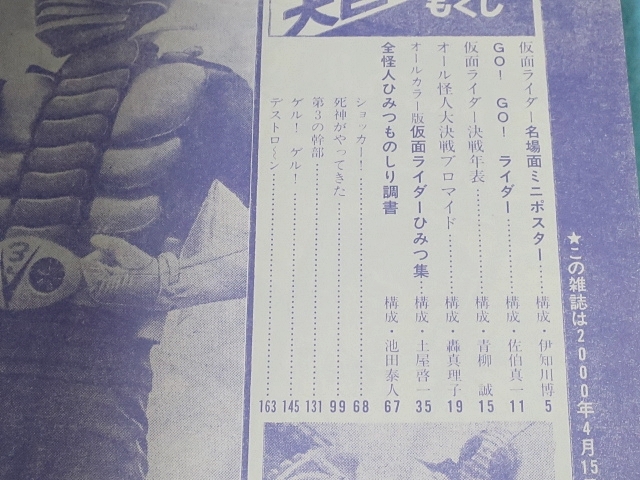 もくじ
仮面ライダー名場面ミニポスター……構成・伊知川博 5
GO! GO! ライダー……構成・佐伯真一 11
仮面ライダー決戦年表……構成・青柳 誠 15
オール怪人大決戦ブロマイド……構成・轟真理子 19
オールカラー版仮面ライダーひみつ集 構成・土屋啓一 35
全怪人ひみつものしり調書 構成・池田泰人 67
ショッカー!……68
死神がやってきた……99
第3の幹部……131
ゲル! ゲル!……145
デストロ〜ン……163
★この雑誌は2000年4月15